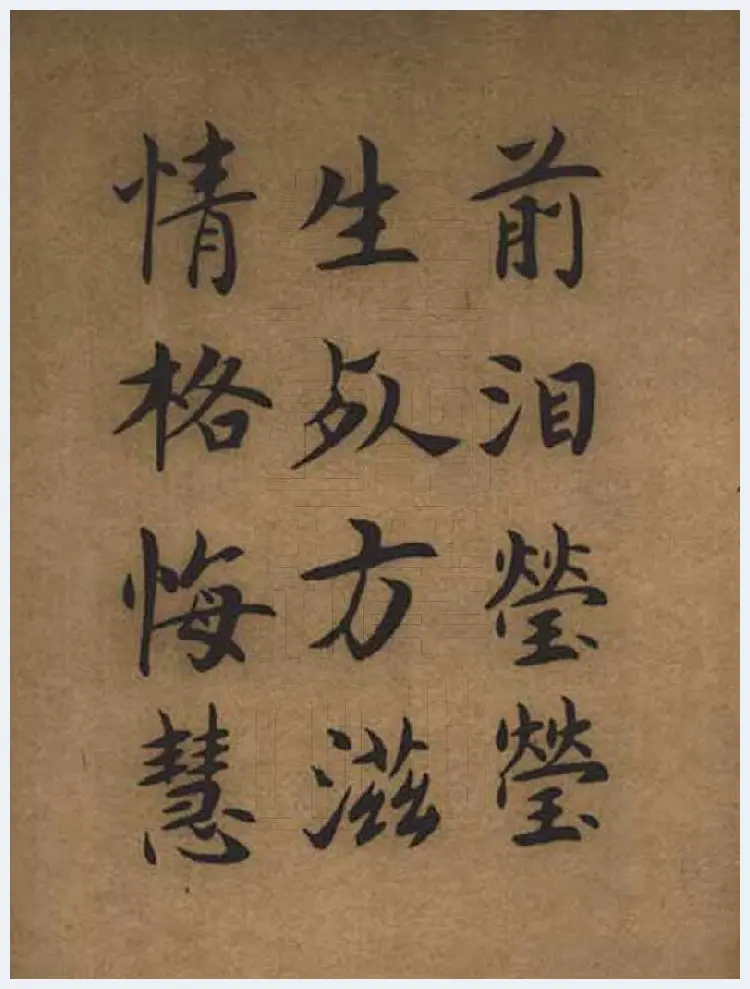 前泪瑩瑩
生死方滋
情格悔慧